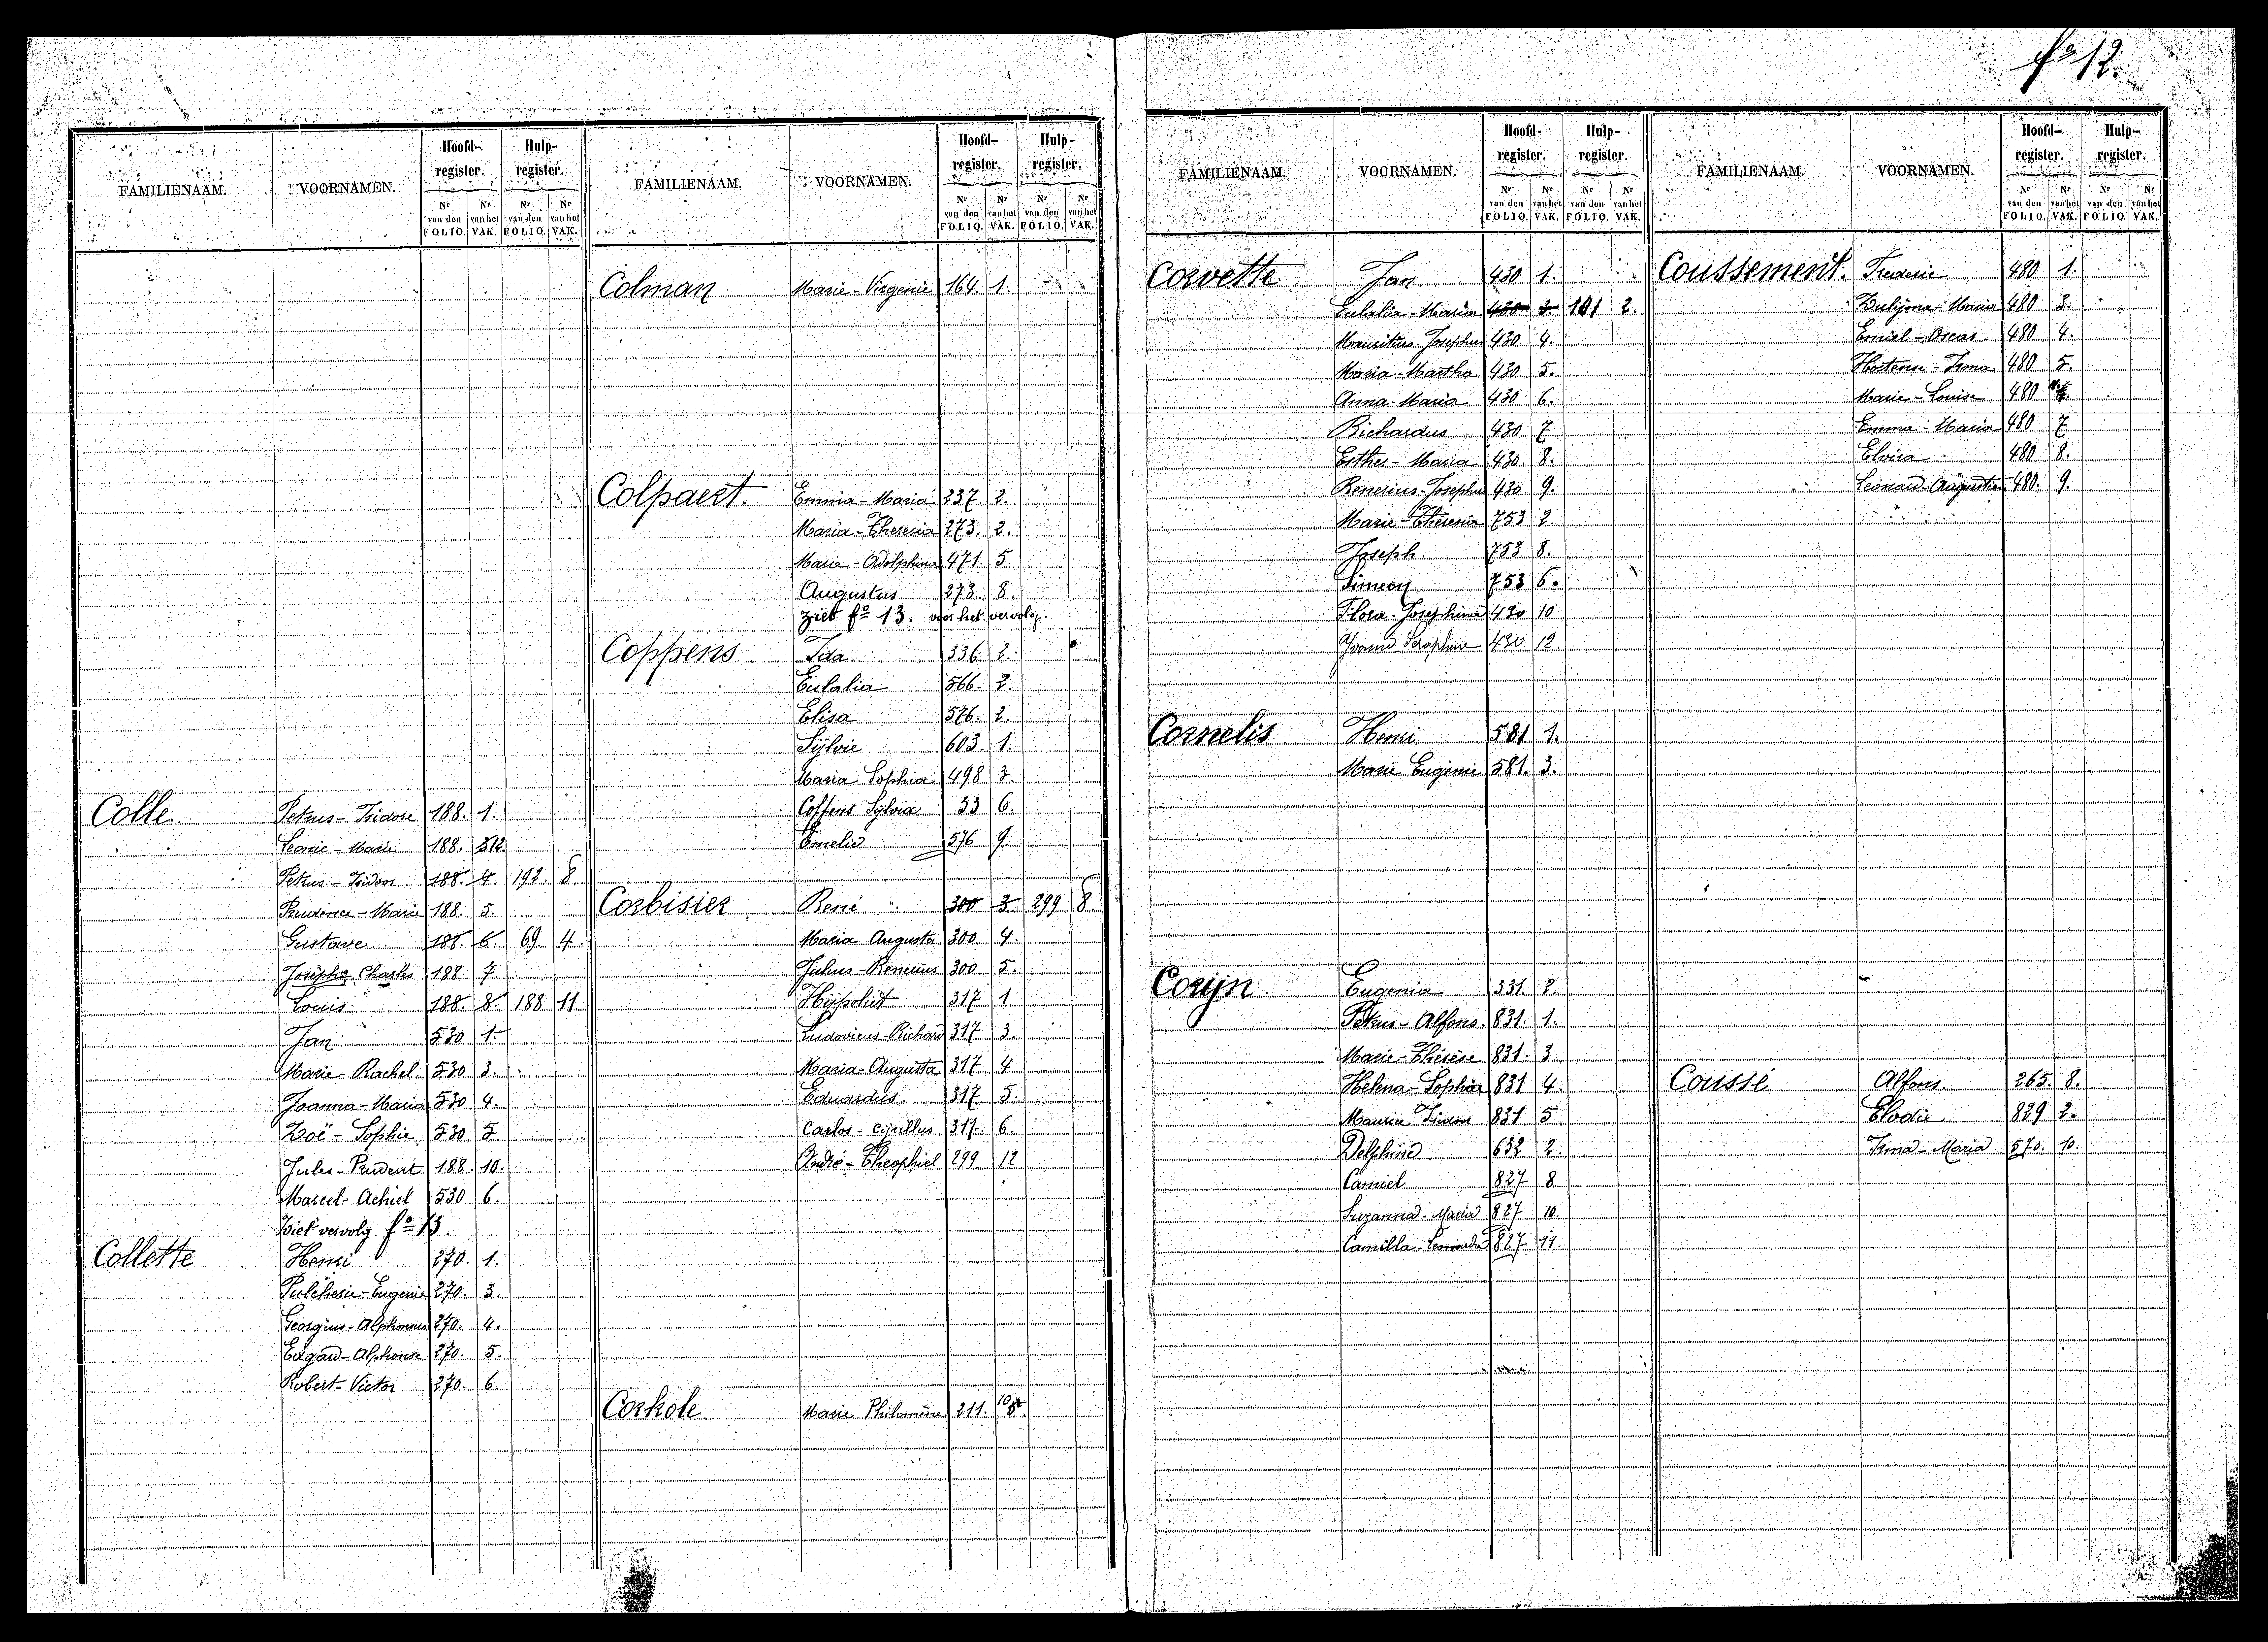 fo 12.
FAMILIENAAM. VOORNAMEN. Hoofd-register. Hulp-register.
Nr van den FOLIO. Nr van het VAK. Nr van den FOLIO. Nr van het VAK.
Colle. Petrus - Isidore 188. 1.
Leonie - Marie 188. 3 12
Petrus - Isidoor 188. 4. 192. 8.
Prudence - Marie 188. 5.
Gustave 188. 6. 69. 4.
Joseph Charles 188. 7.
Louis 188. 8. 188 11
Jan 530 1.
Marie - Rachel 530 3.
Joanna - Maria 530 4.
Zoë - Sophie 530 5
Jules - Prudent 188. 10.
Marcel - Achiel 530 6.
Ziet vervolg fo 13.
Collette Henri 270. 1.
Pulcherie - Eugenie 270. 3.
Georgius - Alphonsus 270. 4.
Edgard - Alphonse 270. 5.
Robert - Victor 270. 6.
FAMILIENAAM. VOORNAMEN. Hoofd-register. Hulp-register.
Nr van den FOLIO. Nr van het VAK. Nr van den FOLIO. Nr van het VAK.
Colman Marie - Virgenie 164. 1.
Colpaert. Emma - Maria 237. 2.
Maria - Theresia 273. 2.
Marie - Adolphina 471. 5.
Augustus 273. 8.
ziet fo 13. voor het vervolg.
Coppens Ida 336. 2.
Eulalia 566. 2.
Elisa 576. 2.
Sylvie 603. 1.
Maria Sophia 498 3.
Coppens Sylvia 33 6.
Emelie 576 9
Corbisier René 300 3 299 8.
Maria Augusta 300 4.
Julius - Renerius 300 5.
Hijpoliet 317 1
Ludovicus - Richard 317 3.
Maria - Augusta 317 4
Eduardus 317 5.
Carlos - Cyrillus 317. 6.
André - Theophiel 299 12
Corkole Marie Philomène 211. 10 8
FAMILIENAAM. VOORNAMEN. Hoofd-register. Hulp-register.
Nr van den FOLIO. Nr van het VAK. Nr van den FOLIO. Nr van het VAK.
Corvette Jan 430 1.
Eulalia - Maria 430 3. 101 2.
Mauritius - Josephus 430 4.
Maria - Martha 430 5.
Anna - Maria 430 6.
Richardus 430 7
Esther - Maria 430. 8.
Renerius - Josephus 430. 9.
Marie - Theresia 753 2.
Joseph 753 8.
Simeon 753 6.
Flora - Josephina 430 10
Yvonne Seraphine 430 12
Cornelis Henri 581 1.
Marie Eugenie 581. 3.
Coryn Eugenia 331. 2.
Petrus - Alfons. 831. 1.
Marie - Thérèse 831. 3
Helena - Sophia 831 4.
Maurice Isidoor 831 5
Delphine 632 2.
Camiel 827 8
Suzanna - Maria 827 10.
Camilla - Leonarda 827 11.
FAMILIENAAM. VOORNAMEN. Hoofd-register. Hulp-register.
Nr van den FOLIO. Nr van het VAK. Nr van den FOLIO. Nr van het VAK.
Coussement. Frederic 480 1.
Zulijma - Maria 480 3.
Emiel - Oscar 480 4.
Hortense - Irma 480 5.
Marie - Louise 480
Emma - Maria 480 7
Elvira 480 8.
Leonard - Augustin 480. 9.
Coussé Alfons. 265. 8.
Elodie 829 2.
Irma - Maria 570. 10.